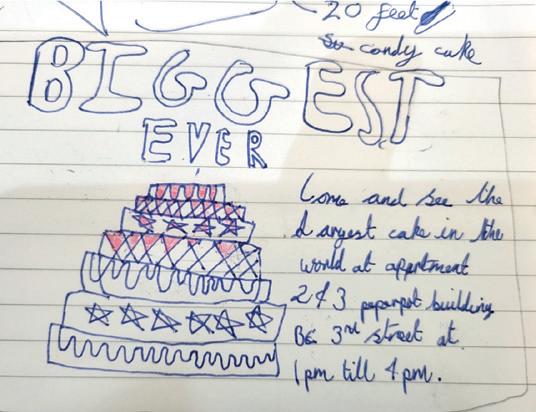 20 feet
candy cake
BIGGEST
EVER
Come and see the
largest cake in the
world at appartment
2 & 3 paperpot building
3rd street at
1pm till 4pm.